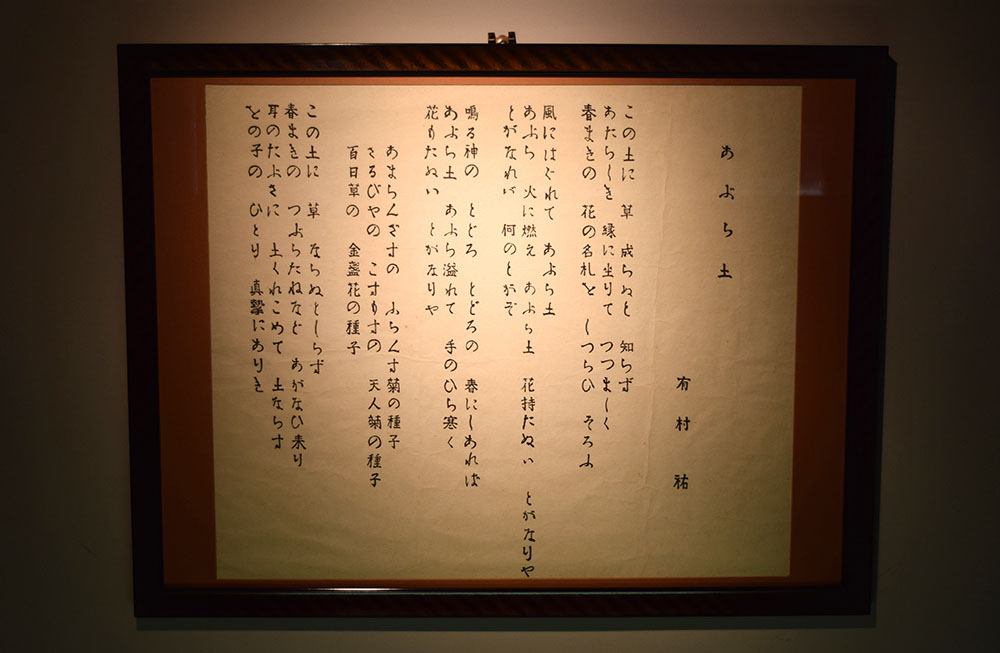 あぶら土
有村祐
この土に 草 成らぬと 知らず
あたらしき 縁に坐りて つつましく
春まきの 花の名札を しつらひ そろふ
風にはぐれて あぶら土
あぶら 火に燃え あぶら土 花持たぬい とがなりや
とがなれば 何のとがぞ
鳴る神の とどろ とどろの 春にしあれば
あぶら土 あぶら溢れて 手のひら寒く
花もたぬい とがなりや
あまらんざすの ふらんす菊の種子
さるびやの こすもすの 天人菊の種子
百日草の 金盞花の種子
この土に 草 ならぬとしらず
春まきの つぶらたねなど あがなひ来り
耳のたぶさに 土くれこめて 土ならす
をの子の ひとり 真摯にありき